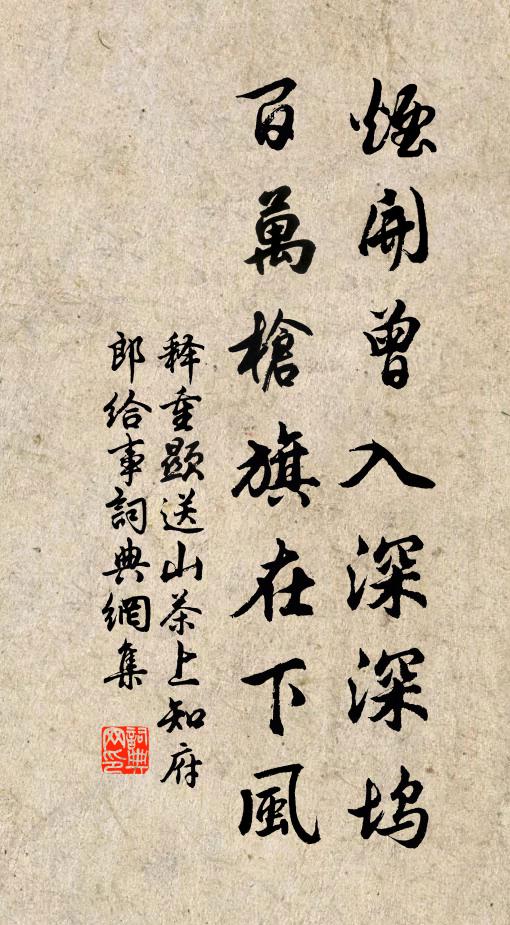 煙開曾入深深塢
百萬槍旗在下風
释重顯送山茶上知府
郎給事詞典網集
詞典網印